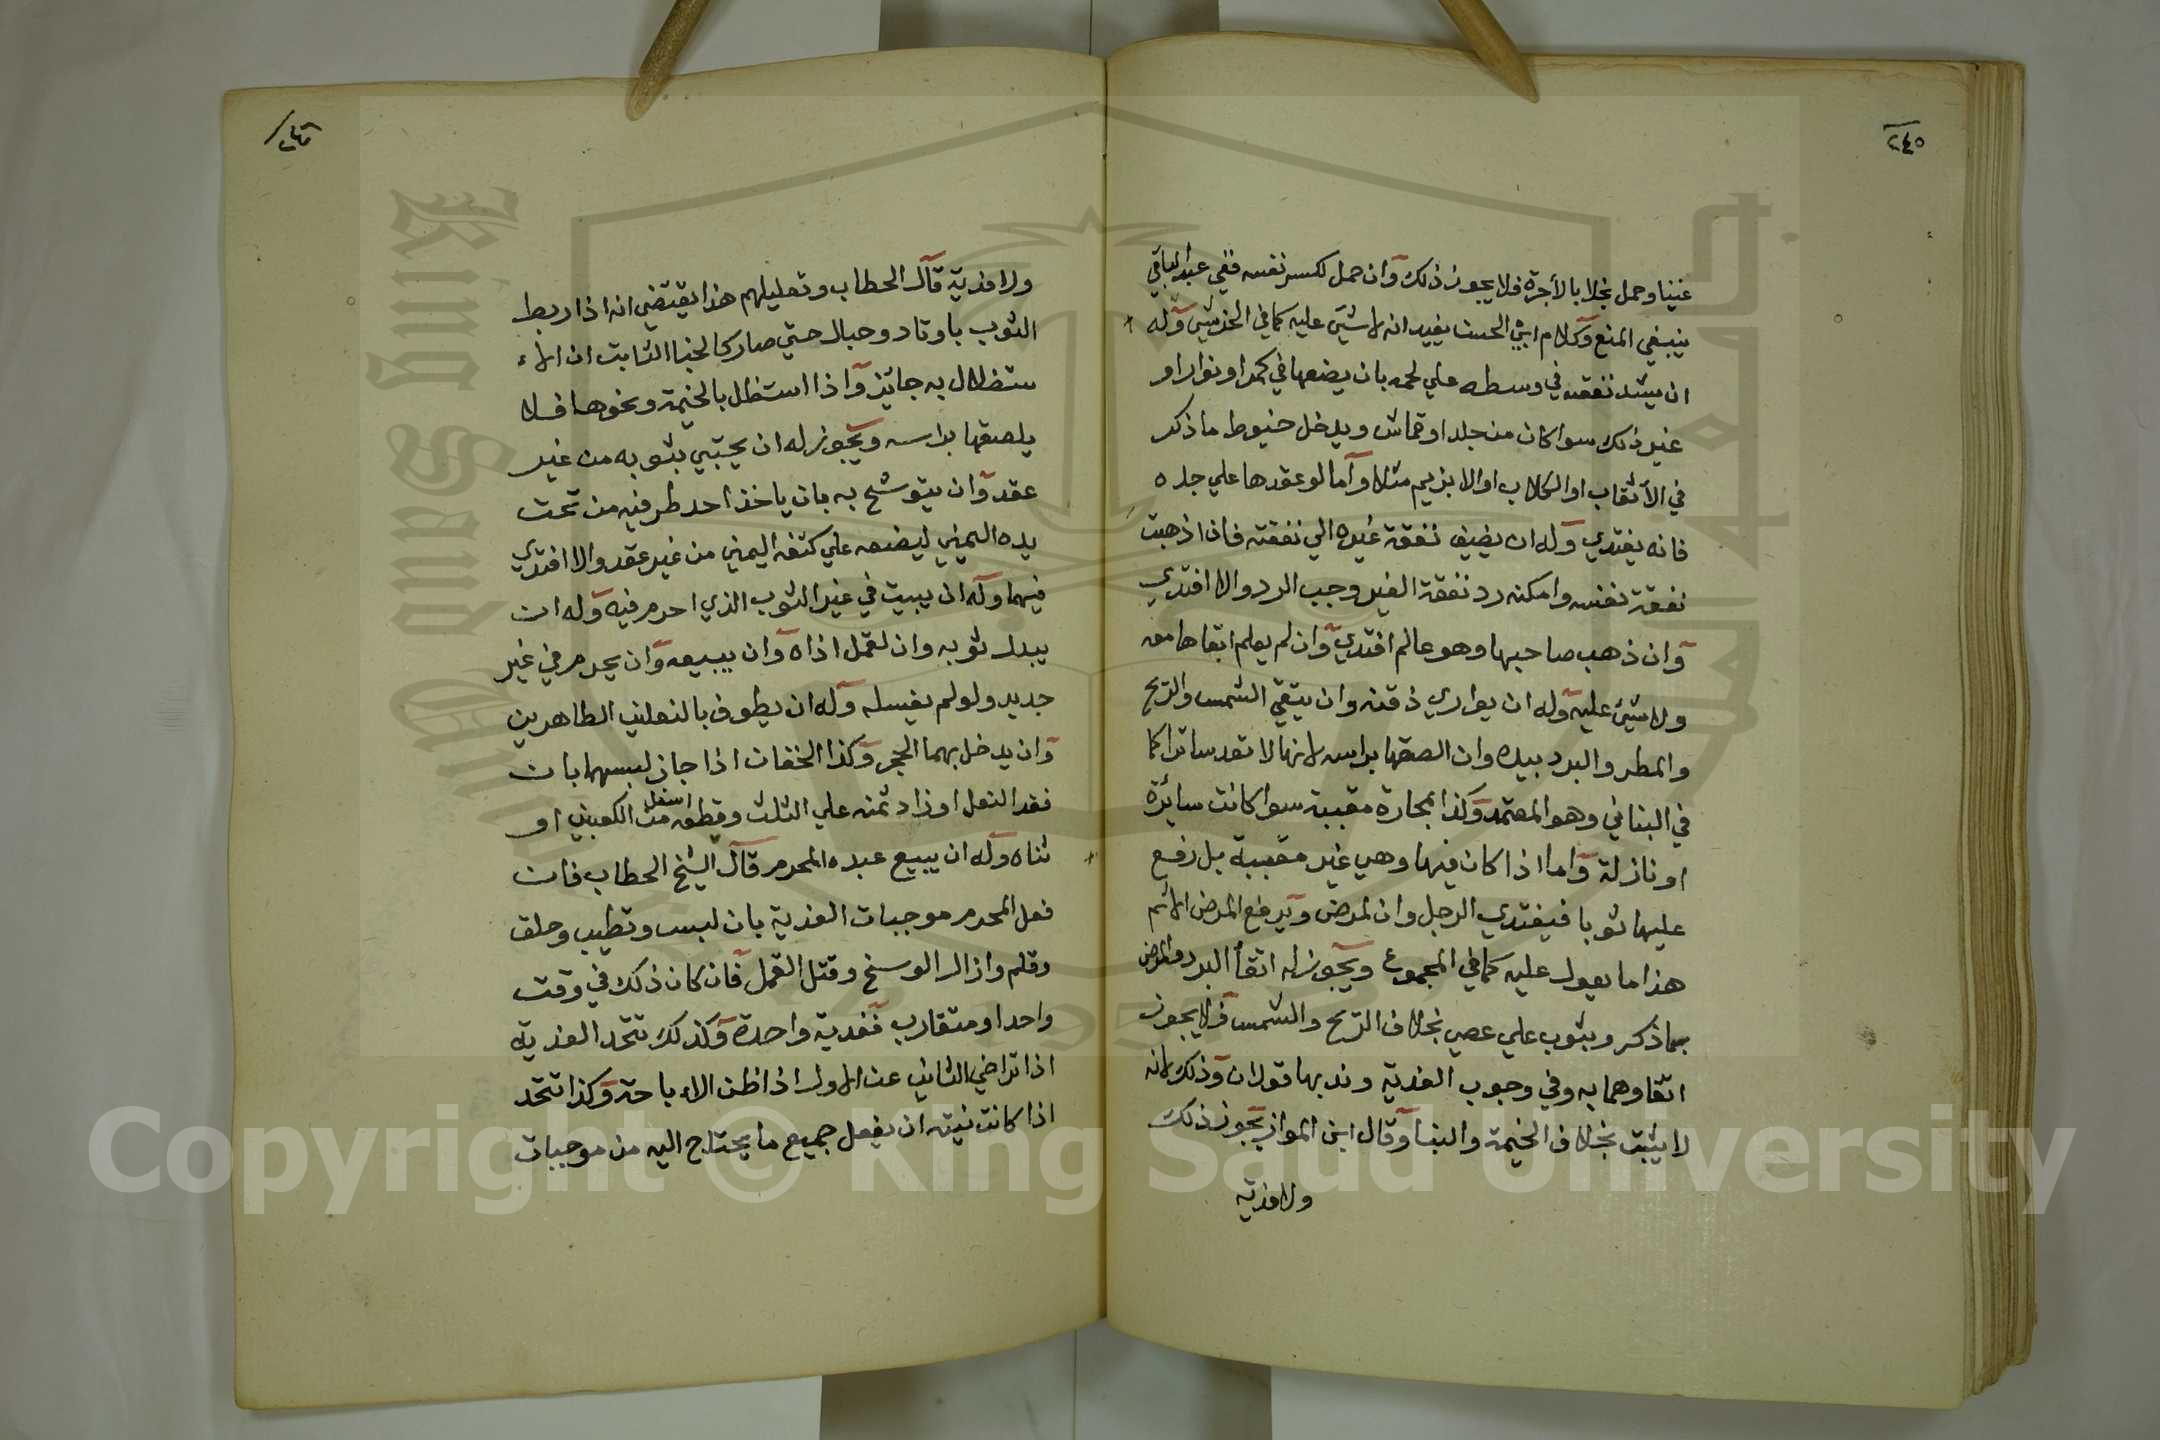 ٢٤٥
غنيا وحمل بخلا بالأجرة فلا يجوز ذلك وان حمل لكسر نفسه ففي عبد الباقي
ينبغي المنع وكلام ابي الحسن يفيد انه لا شيئ عليه كما في الخرشي وله
ان يشد نفقته في وسطه علي لحمه بان يضعها في كمر او نوار او
غير ذلك سوا كان من جلد او قماش ويدخل خيوط ما ذكر
في الأثقاب او الكلاب او الابزيم مثلا وأما لو عقدها علي جلده
فانه يفتدي وله ان يضيف نفقة غيره الي نفقته فاذا ذهبت
نفقة نفسه وامكنه رد نفقة الغير وجب الرد والا افتدي
وان ذهب صاحبها وهو عالم افتدي وان لم يعلم ابقاها معه
ولا شيئ عليه وله ان يواري ذقنه وان يتقي الشمس والريح
والمطر والبرد بيده وان الصقها براسه لانها لا تعد ساترا كما
في البناني وهو المعتمد وكذا بمحارة مقببة سوا كانت سائرة
او نازلة واما اذا كان فيها وهي غير مقببة بل رفع
عليها ثوبا فيفتدي الرجل وان لمرض ويرفع المرض الاثم
هذا ما يعول عليه كما في المجموع ويجوز له اتقأ البرد والمطر
بما ذكر وبثوب علي عصي بخلاف الريح والشمس فلا يجوز
اتقاوهما به وفي وجوب الفدية وندبها قولان وذلك لانه
لا يثبت بخلاف الخيمة والبنا وقال ابن المواز يجوز ذلك
ولا فدية
٢٤٦
ولا فدية قال الحطاب وتعليلهم هذا يقتضي انه اذا ربط
الثوب باوتاد وحبال حتي صار كالخبا الثابت ان الاء
ستظلال به جائز واذا استظل بالخيمة ونحوها فلا
يلصقها براسه ويجوز له ان يحتبي بثوبه من غير
عقد وان يتوشح به بان ياخذ احد طرفيه من تحت
يده اليمني ليضعه علي كتفه اليمني من غير عقد والا افتدي
فيهما وله ان يبيت في غير الثوب الذي احرم فيه وله ان
يبدل ثوبه وان لقمل اذاه وان يبيعه وان يحرم في غير
جديد ولو لم يغسله وله ان يطوف بالنعلين الطاهرين
وان يدخل بهما الحجر وكذا الخفان اذا جاز لبسهما بان
فقد النعل او زاد ثمنه علي الثلث وقطعه اسفل من الكعبين او
ثناه وله ان يبيع عبده المحرم قال الشيخ الحطاب فان
فعل المحرم موجبات الفدية بان لبس وتطيب وحلق
وقلم وازال الوسخ وقتل القمل فان كان ذلك في وقت
واحد او متقارب ففدية واحدة وكذلك تتحد الفدية
اذا تراخي الثاني عن الاول اذا ظن الاباحة وكذا تتحد
اذا كانت نيته ان يفعل جميع ما يحتاج اليه من موجبات
Copyright © King Saud University
King Saud University
1957